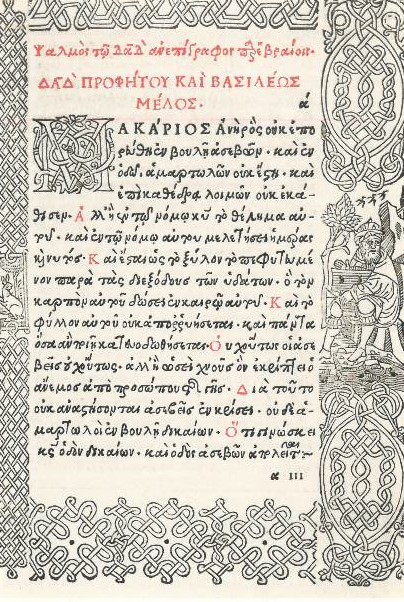 Ψαλμὸς τῷ Δαδ ἀνεπίγραφος παρ' ἑβραίοις.
ΔΑΔ ΠΡΟΦΗΤΟΥ ΚΑΙ ΒΑΣΙΛΕΩΣ
ΜΕΛΟΣ· α
ΜΑΚΑΡΙΟΣ ἀνὴρ ὃς οὐκ ἐπο
ρεύθη ἐν βουλῇ ἀσεβῶν· καὶ ἐν
ὁδῷ ἁμαρτωλῶν οὐκ ἔστη· καὶ
ἐπὶ καθέδρᾳ λοιμῶν οὐκ ἐκά-
θισεν· Ἀλλ' ἢ ἐν τῷ νόμῳ κυ τὸ θέλημα αυ
τοῦ· καὶ ἐν τῷ νόμῳ αὐτοῦ μελετήσει ἡμέρας
κὴ νυκτός· Καὶ ἔσται ὡς τὸ ξύλον τὸ πεφυτευμέ
νον παρὰ τὰς διεξόδους τῶν ὑδάτων· ὃ τὸν
καρπὸν αὐτοῦ δώσει ἐν καιρῷ αὐτοῦ· Καὶ τὸ
φύλλον αὐτοῦ οὐκ ἀποῤῥυήσεται· καὶ πάντα
ὅσα ἂν ποιῇ κατευοδωθήσεται· Οὐχ οὕτως οἱ ἀσε
βεῖς οὐχ οὕτως· ἀλλ' ἢ ὡσεὶ χνοῦς ὃν ἐκρίπτει ὁ
ἄνεμος ἀπὸ προσώπου τῆς γῆς· Διὰ τοῦτο
οὐκ ἀναστήσονται ἀσεβεῖς ἐν κρίσει· οὐδὲ ἁ-
μαρτωλοὶ ἐν βουλῇ δικαίων· Ὅτι γινώσκει
κς ὁδὸν δικαίων· καὶ ὁδὸς ἀσεβῶν ἀπολεῖται
α III